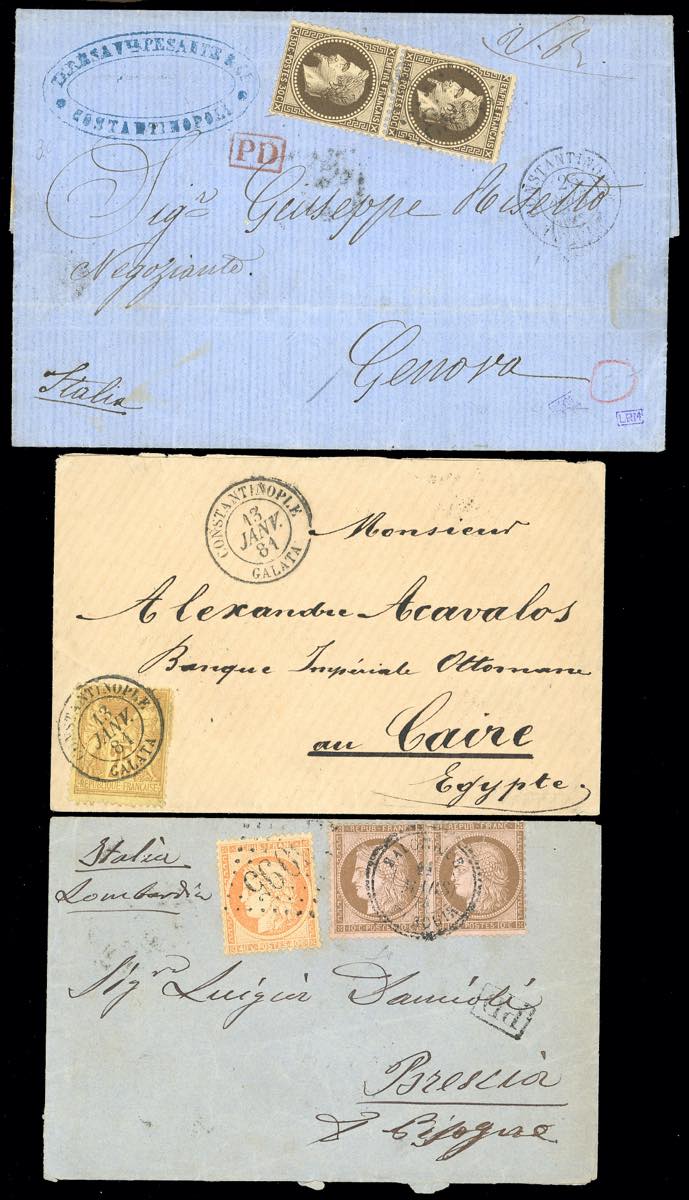 TERESA Vª PESAUTE & Cº
COSTANTINOPOLI
30C POSTES 30C EMPIRE FRANÇAIS
30C POSTES 30C EMPIRE FRANÇAIS
PD
CONSTANTINOPLE
Sigr. Giuseppe
Negoziante.
Genova
Italia
LRM
CONSTANTINOPLE
13
JANV.
81
GALATA
Monsieur
Alexandre Acavalos
Banque Impériale Ottomane
au Caire
Egypte
CONSTANTINOPLE
13
JANV.
81
GALATA
REPUBLIQUE FRANÇAISE
Italia
Lombardia
40C POSTES 40C
REPUB. FRANC.
10C POSTES 10C
REPUB. FRANC.
10C POSTES 10C
Sigr. Luigia
PD
Brescia